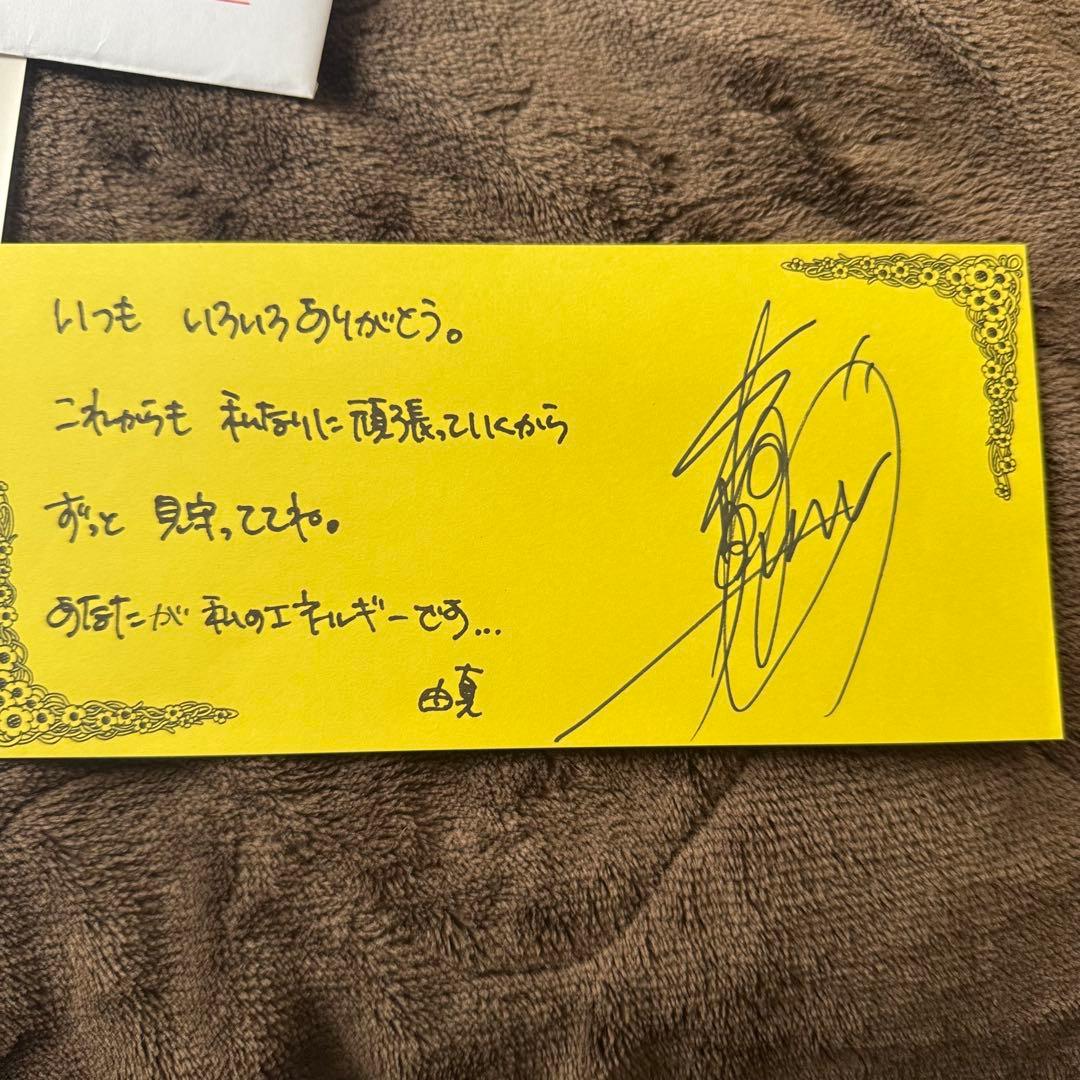 いつも いろいろありがとう。
これからも 私なりに頑張っていくから
ずっと 見守っててね。
あなたが 私のエネルギーです...
由真